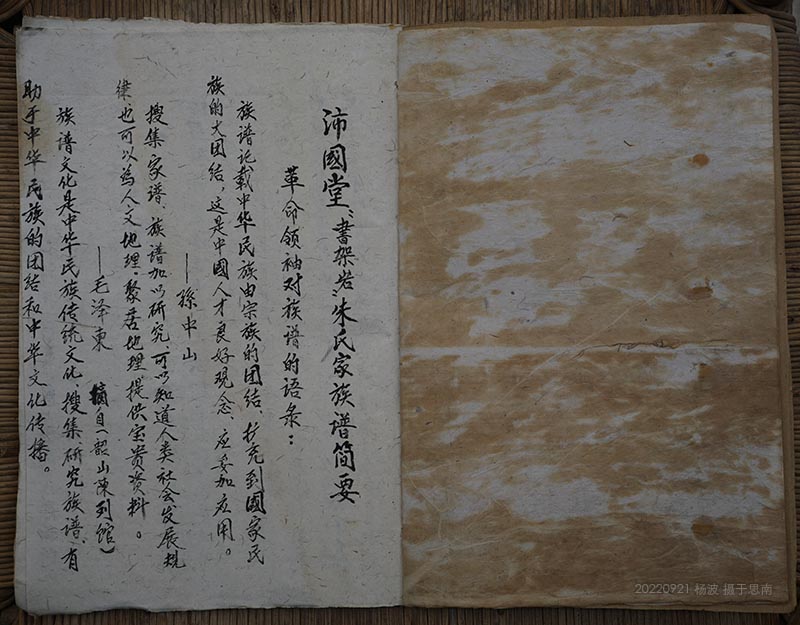 沛國堂“書架岩”朱氏家族谱简要
革命领袖对族谱的语录：
族谱记載中华民族由宗族的团结、扩充到國家民
族的大团结，这是中國人才良好观念、应妥加应用。
——孫中山
搜集家谱、族谱加以研究，可以知道人类社会发展規
律也可以為人文地理、聚居地理提供宝贵资料。
——毛泽東 摘自（韶山陳列舘）
族谱文化是中华民族传统文化、搜集研究族谱、有
助于中华民族的团结和中华文化传播。
20220921 杨波 摄于思南